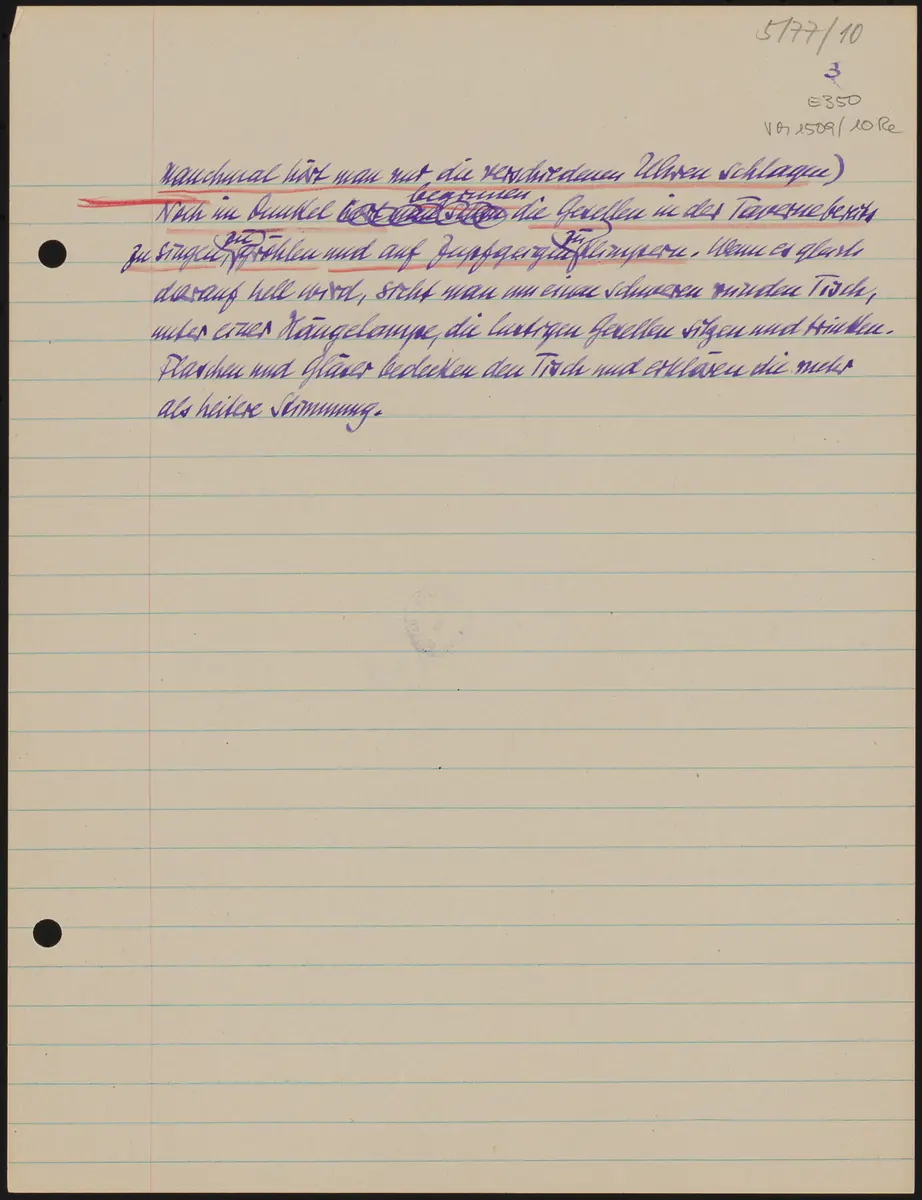 5/77/10
3
E350
VA 1509/10 Re
Manchmal hört man nur die verschiedenen Uhren schlagen)
beginnen
Noch im Dunkel die Gesellen in der Taverne bereits
zu singen, zu gröhlen und auf Zupfgeigen zu klimpern. Wenn es gleich
darauf hell wird, sieht man um einen schweren runden Tisch,
unter einer Hängelampe, die lustigen Gesellen sitzen und trinken.
Flaschen und Gläser bedecken den Tisch und erklären die mehr
als heitere Stimmung.